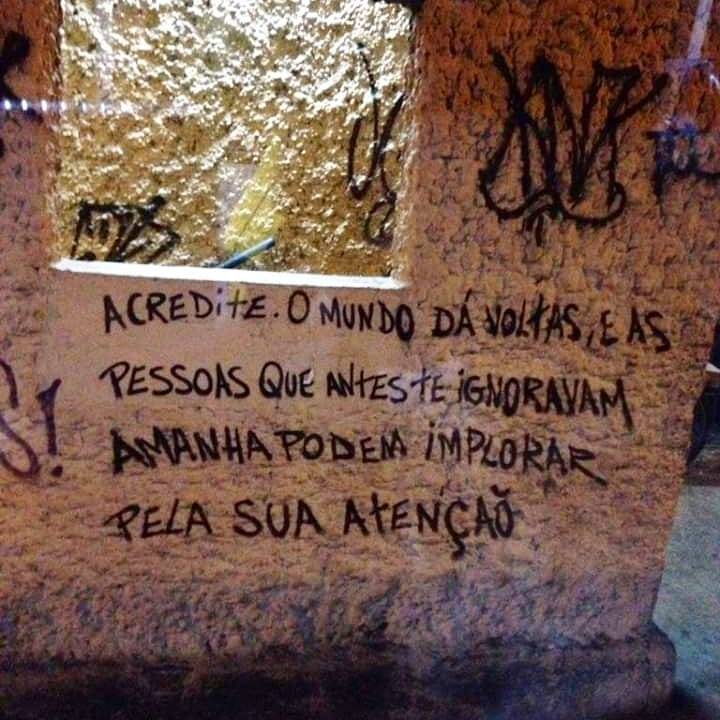 ACREDITE. O MUNDO DÁ VOLTAS, E AS
PESSOAS QUE ANTES TE IGNORAVAM
AMANHA PODEM IMPLORAR
PELA SUA ATENÇAÕ